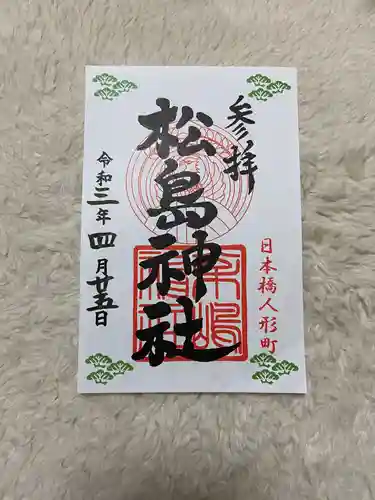 参拝
松島神社
令和三年四月廿五日
日本橋人形町